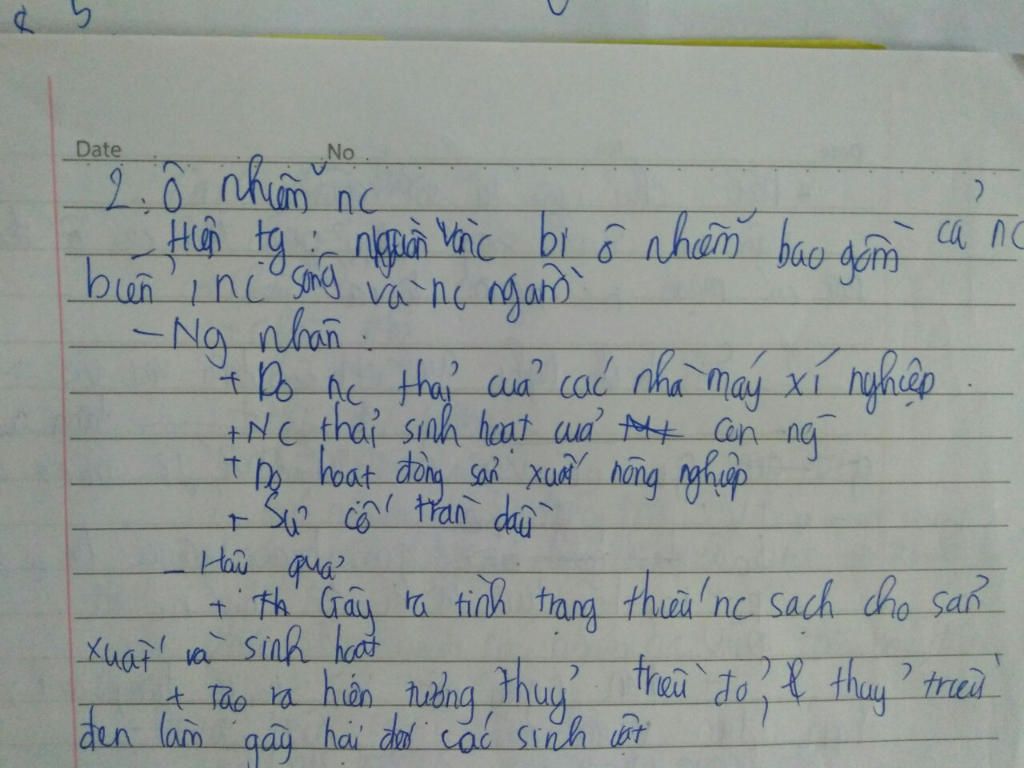 Date No
2. Ô nhiễm nc
- Hiện tg : nguồn nc bị ô nhiễm bao gồm cả nc
biển, nc sông và nc ngầm
- Ng nhân :
+ Do nc thải của các nhà máy xí nghiệp.
+ Nc thải sinh hoạt của con ng
+ Do hoạt động sản xuất nông nghiệp
+ Sự cố tràn dầu
- Hậu quả
+ Gây ra tình trạng thiếu nc sạch cho sản
xuất và sinh hoạt
+ Tạo ra hiện tượng thuỷ triều đỏ, thuỷ triều
đen làm gây hại các sinh vật